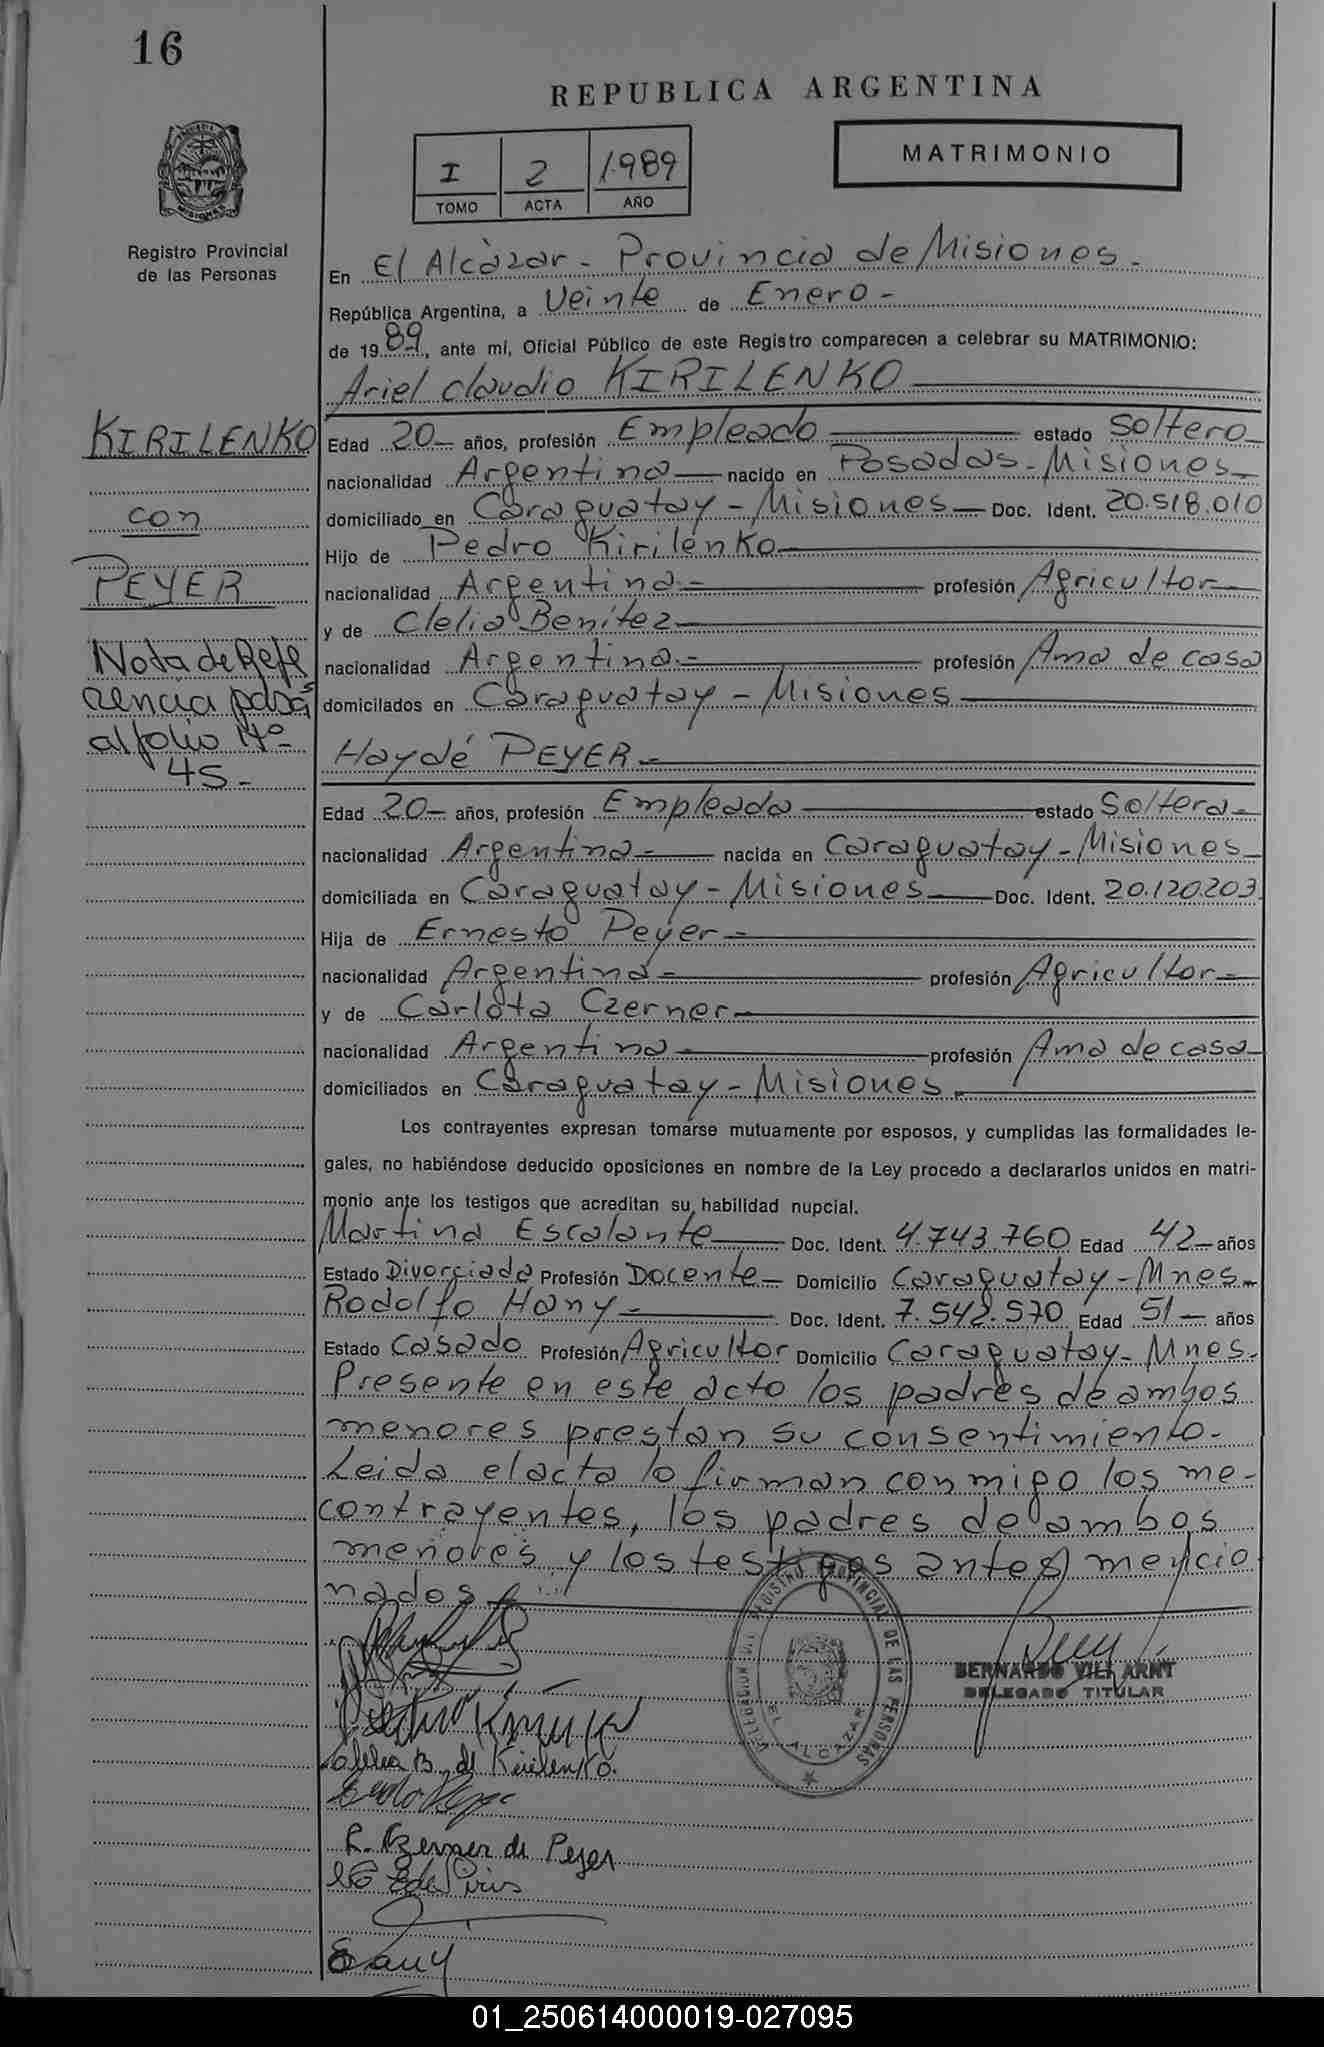 16
REPUBLICA ARGENTINA
I 2 1.989
TOMO ACTA AÑO
MATRIMONIO
Registro Provincial
de las Personas
En El Alcàzar - Provincia de Misiones -
República Argentina, a Veinte de Enero -
de 1989, ante mí, Oficial Público de este Registro comparecen a celebrar su MATRIMONIO:
Ariel Claudio KIRILENKO
KIRILENKO
con
PEYER
Nota de Refe
rencia pasá
al folio Nº
45-
Edad 20- años, profesión Empleado estado Soltero-
nacionalidad Argentina nacido en Posadas - Misiones-
domiciliado en Caraguatay - Misiones - Doc. Ident. 20.518.010
Hijo de Pedro Kirilenko
nacionalidad Argentina - profesión Agricultor
y de Clelia Benítez
nacionalidad Argentina - profesión Ama de casa
domicilados en Caraguatay - Misiones
Haydé PEYER -
Edad 20- años, profesión Empleada estado Soltera-
nacionalidad Argentina - nacida en Caraguatay - Misiones-
domiciliada en Caraguatay - Misiones - Doc. Ident. 20.120.203
Hija de Ernesto Peyer -
nacionalidad Argentina - profesión Agricultor -
y de Carlota Czerner
nacionalidad Argentina profesión Ama de casa-
domiciliados en Caraguatay - Misiones
Los contrayentes expresan tomarse mutuamente por esposos, y cumplidas las formalidades le-
gales, no habiéndose deducido oposiciones en nombre de la Ley procedo a declararlos unidos en matri-
monio ante los testigos que acreditan su habilidad nupcial.
Martina Escalante Doc. Ident. 4.743.760 Edad 42- años
Estado Divorciada Profesión Docente - Domicilio Caraguatay - Mnes-
Rodolfo Hany - Doc. Ident. 7.542.570 Edad 51- años
Estado Casado Profesión Agricultor Domicilio Caraguatay - Mnes.
Presente en este acto los padres de ambos
menores prestan su consentimiento -
Leida el acta lo firman conmigo los me-
contrayentes, los padres de ambos
menores y los testigos antes mencio
nados
DELEGACION REGISTRO PROVINCIAL DE LAS PERSONAS
EL ALCAZAR
BERNARDO VILLARNT
DELEGADO TITULAR
Clelia B. de Kirilenko.
Czerner de Peyer
Hany
01_250614000019-027095